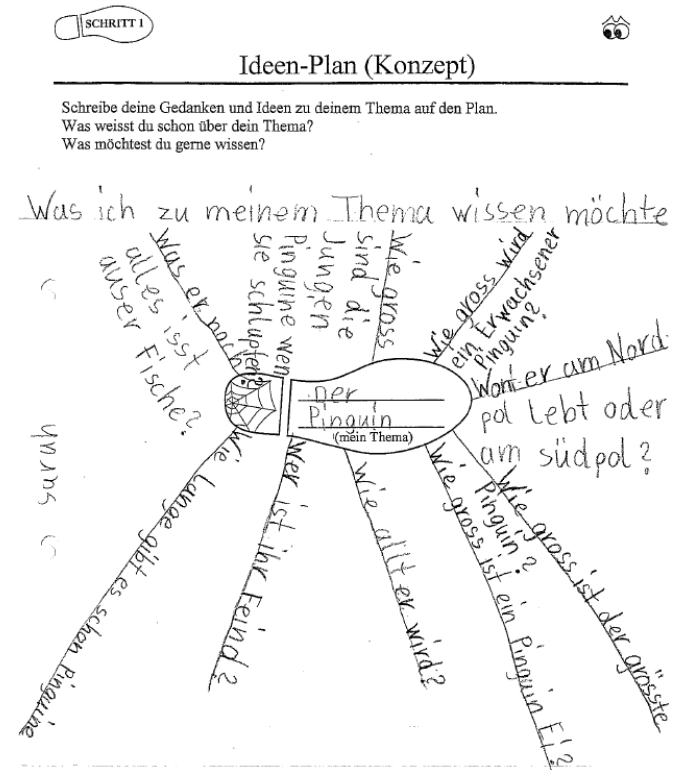 SCHRITT 1
Ideen-Plan (Konzept)
Schreibe deine Gedanken und Ideen zu deinem Thema auf den Plan.
Was weisst du schon über dein Thema?
Was möchtest du gerne wissen?
Was ich zu meinem Thema wissen möchte
Was er noch
alles isst
auser Fische?
Wie gross
sind die
Jungen
Pinguine wen
sie schlupfen?
Wie gross wird
ein Erwachsener
Pinguin?
Wont er am Nord
pol lebt oder
am südpol?
Der
Pinguin
(mein Thema)
Wie gross ist der grösste
Pinguin?
Wie gross ist ein Pinguin Ei?
Wie allt er wird?
Wer ist ihr Feind?
Wie Lange gibt es schon Pinguine
sarah